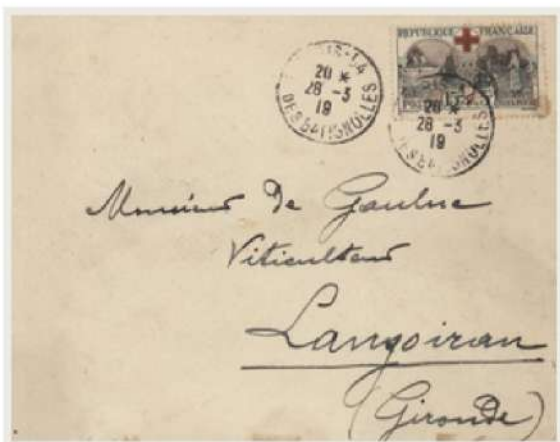 RÉPUBLIQUE FRANÇAISE
20 *
28 -3
19
DES BATIGNOLLES
15
20 *
28 -3
19
DES BATIGNOLLES
Monsieur De
Viticulteur
Langoiran
(Gironde)